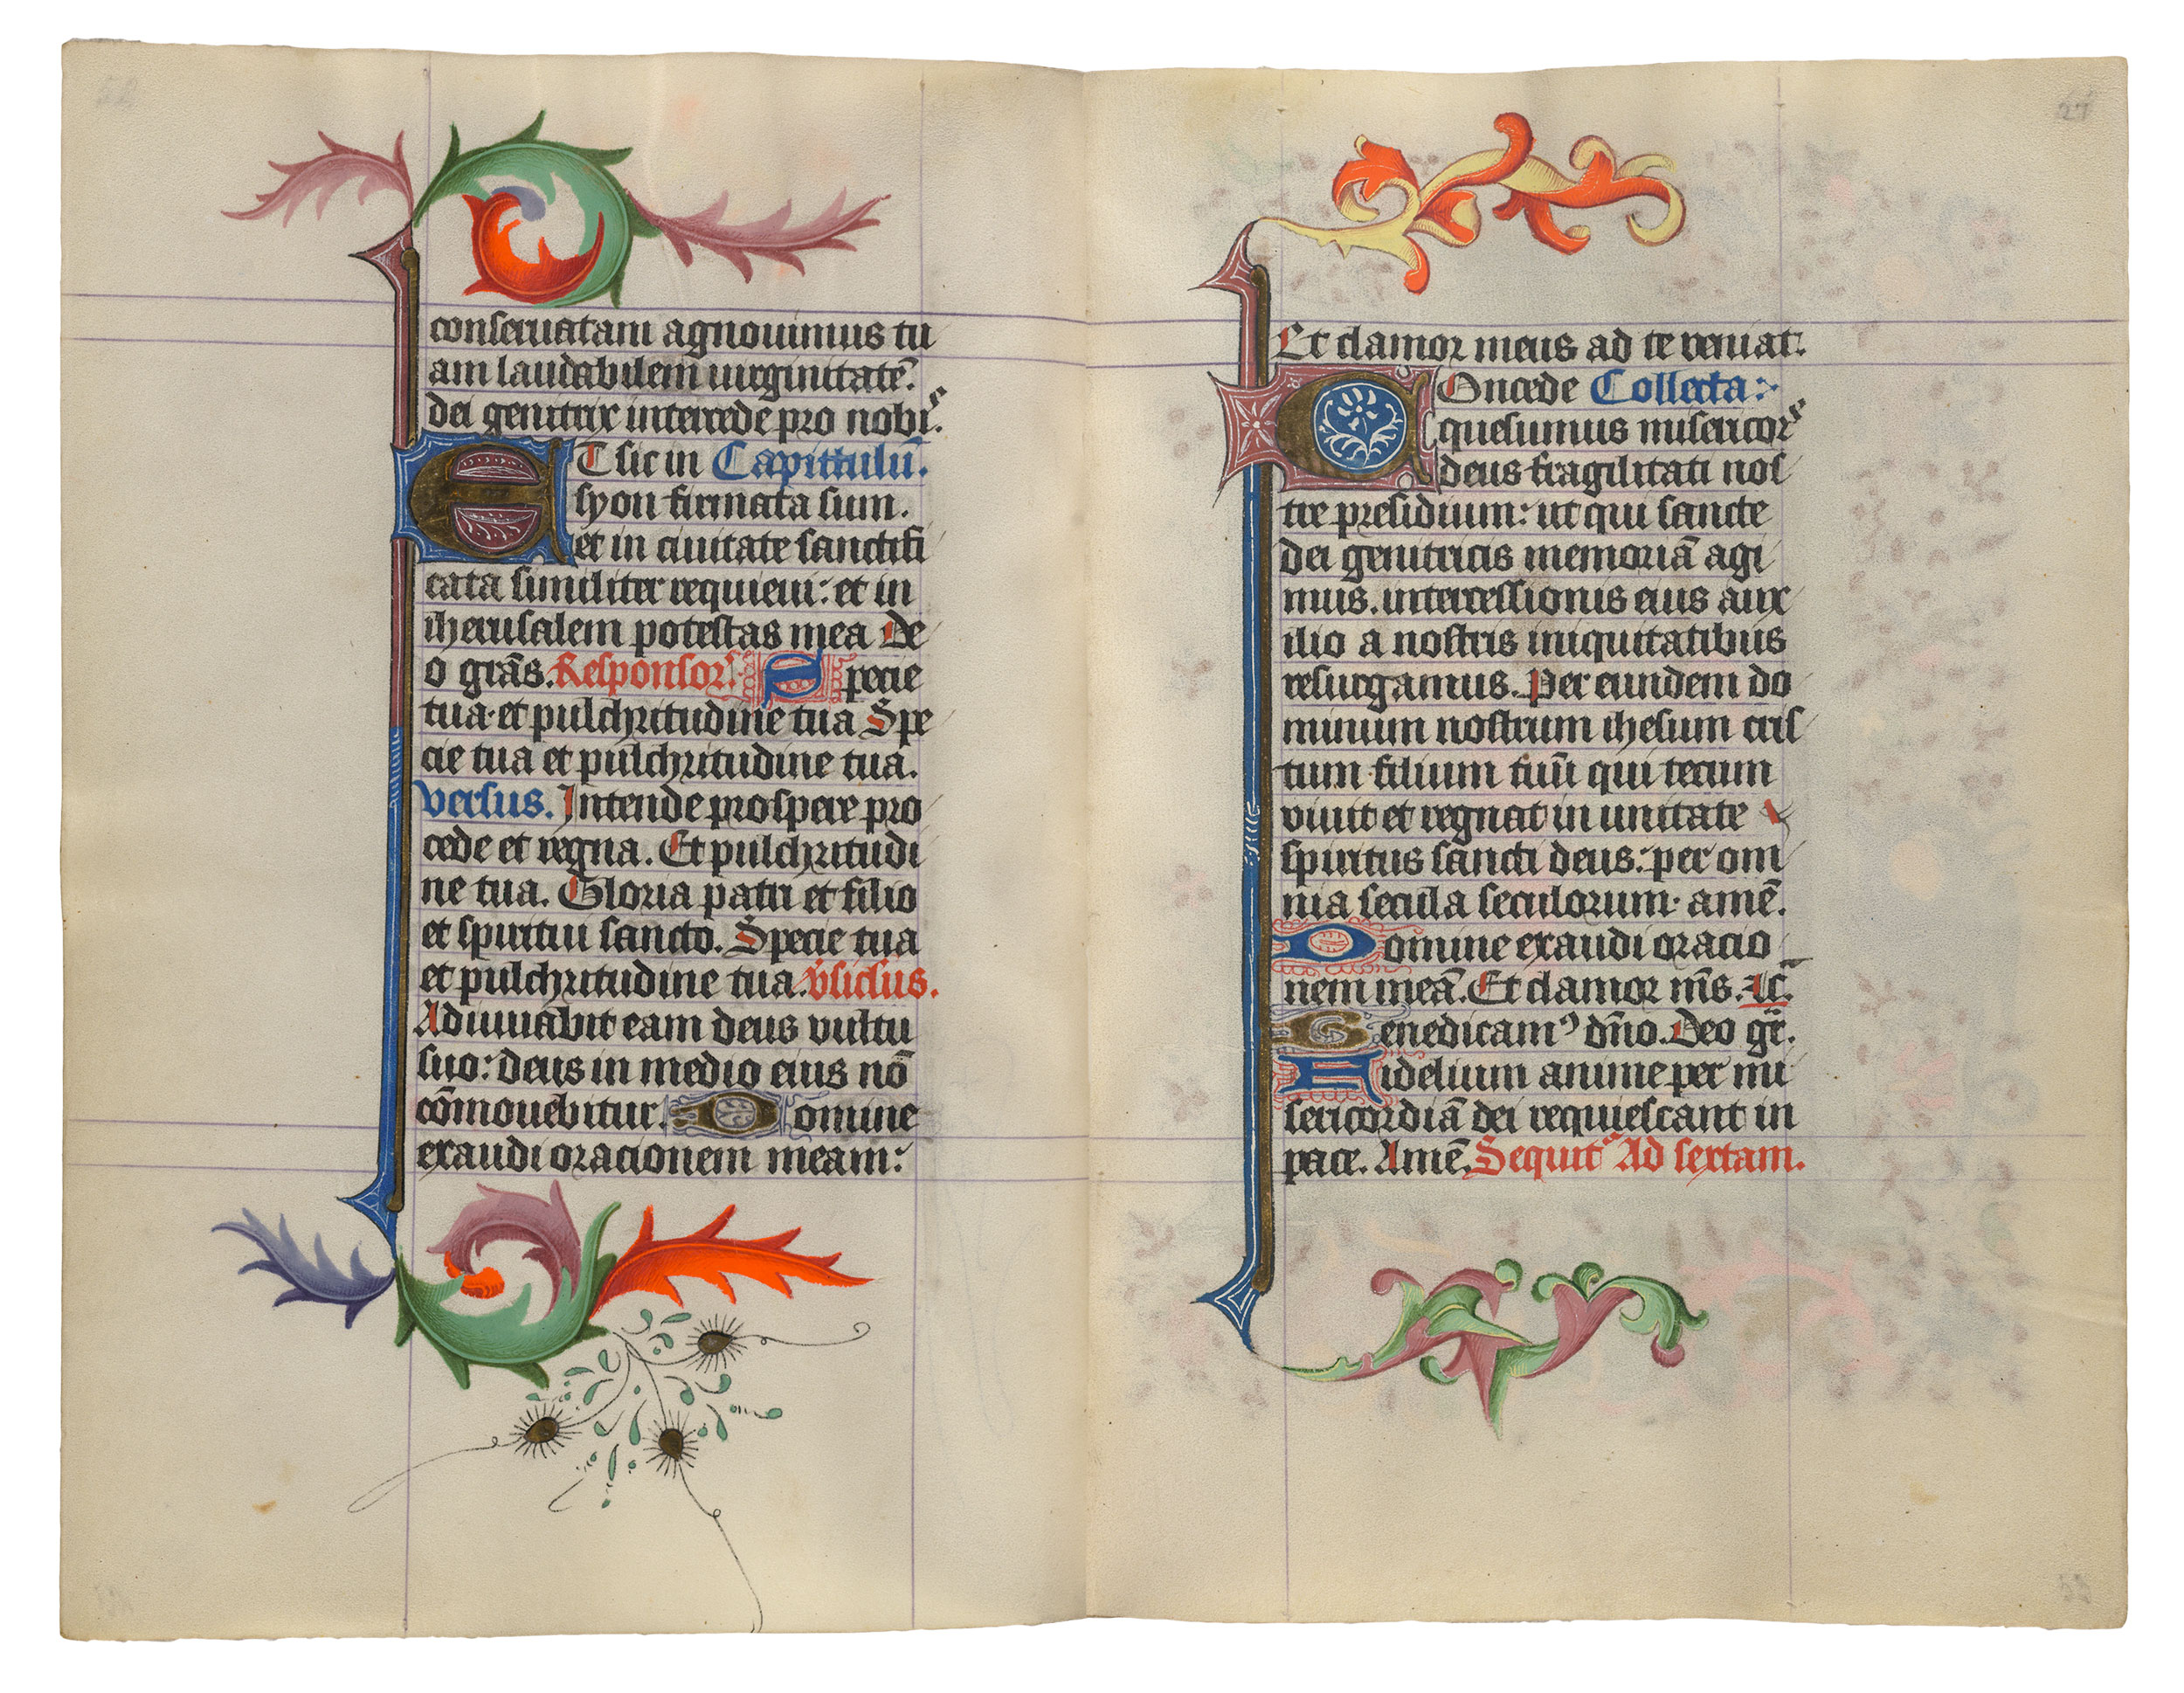 conseruatam agnouimus tu
am laudabilem uirginitatē.
dei genitrix intercede pro nobis.
ET sic in Capittulū.
syon firmata sum.
et in ciuitate sanctifi
cata similiter requieui: et in
iherusalem potestas mea De
o grās. Responsor. Specie
tua et pulchritudine tua Spe
cie tua et pulchritudine tua.
versus. Intende prospere pro
cede et regna. Et pulchritudi
ne tua. Gloria patri et filio
et spiritui sancto. Specie tua
et pulchritudine tua. vsiclus.
Adiuuabit eam deus vultu
suo: deus in medio eius nō
cōmouebitur. Domine
exaudi oracionem meam:
27
Et clamor meus ad te veniat.
COncede Collecta:
quesumus misericors
deus fragilitati nos
tre presidium: ut qui sancte
dei genitricis memoriā agi
mus. intercessionis eius aux
ilio a nostris iniquitatibus
resurgamus. Per eundem do
minum nostrum ihesum cris
tum filium tuū qui tecum
viuit et regnat in unitate
spiritus sancti deus: per om
nia secula seculorum. amē.
Domine exaudi oracio
nem meā. Et clamor mēs.
Benedicamꝰ dño. Deo gr̄.
Fidelium anime per mi
sericordiā dei requiescant in
pace. Amē. Sequit Ad sextam.